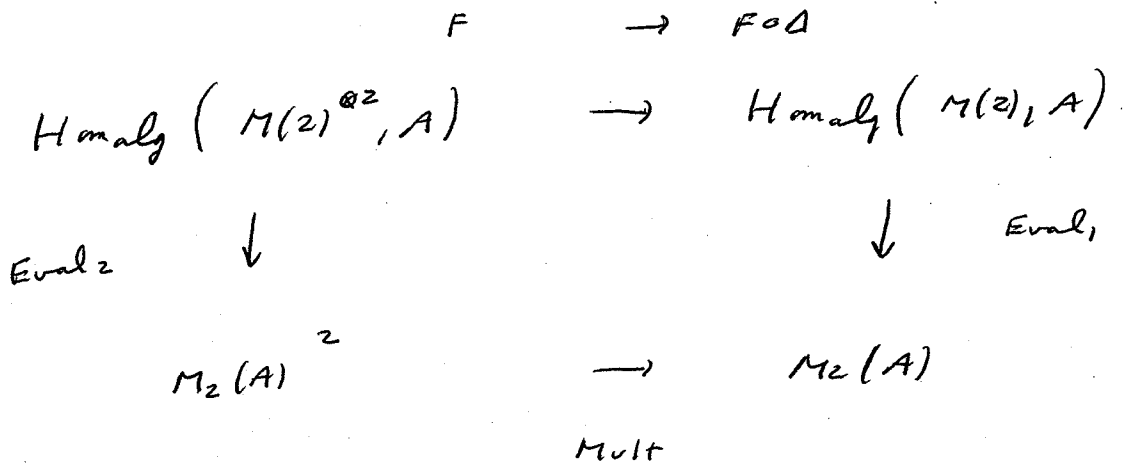 F → F∘Δ
Homalg ( M(2)^{⊗2}, A) → Homalg ( M(2), A)
↓ ↓ Eval₁
Eval₂
M₂(A)² → M₂(A)
Mult